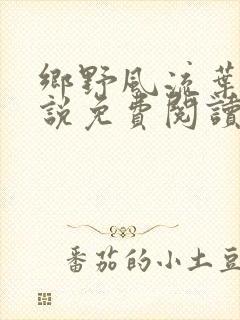 鄉野風流葉
說免費閱讀
番茄的小土豆